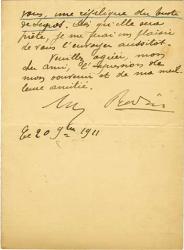 vous, une réplique du buste
de Legros. Dès qu'elle sera
prête, je me ferai un plaisir
de vous l'envoyer aussitôt.
Veuillez agréer, mon
cher ami, l'expression de
mon souvenir et de ma meil
leure amitié.
Aug Rodin
Le 20 9bre 1911